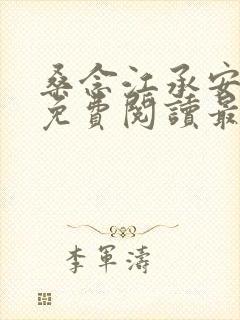 桑念江承安
免費閱讀最
李軍濤